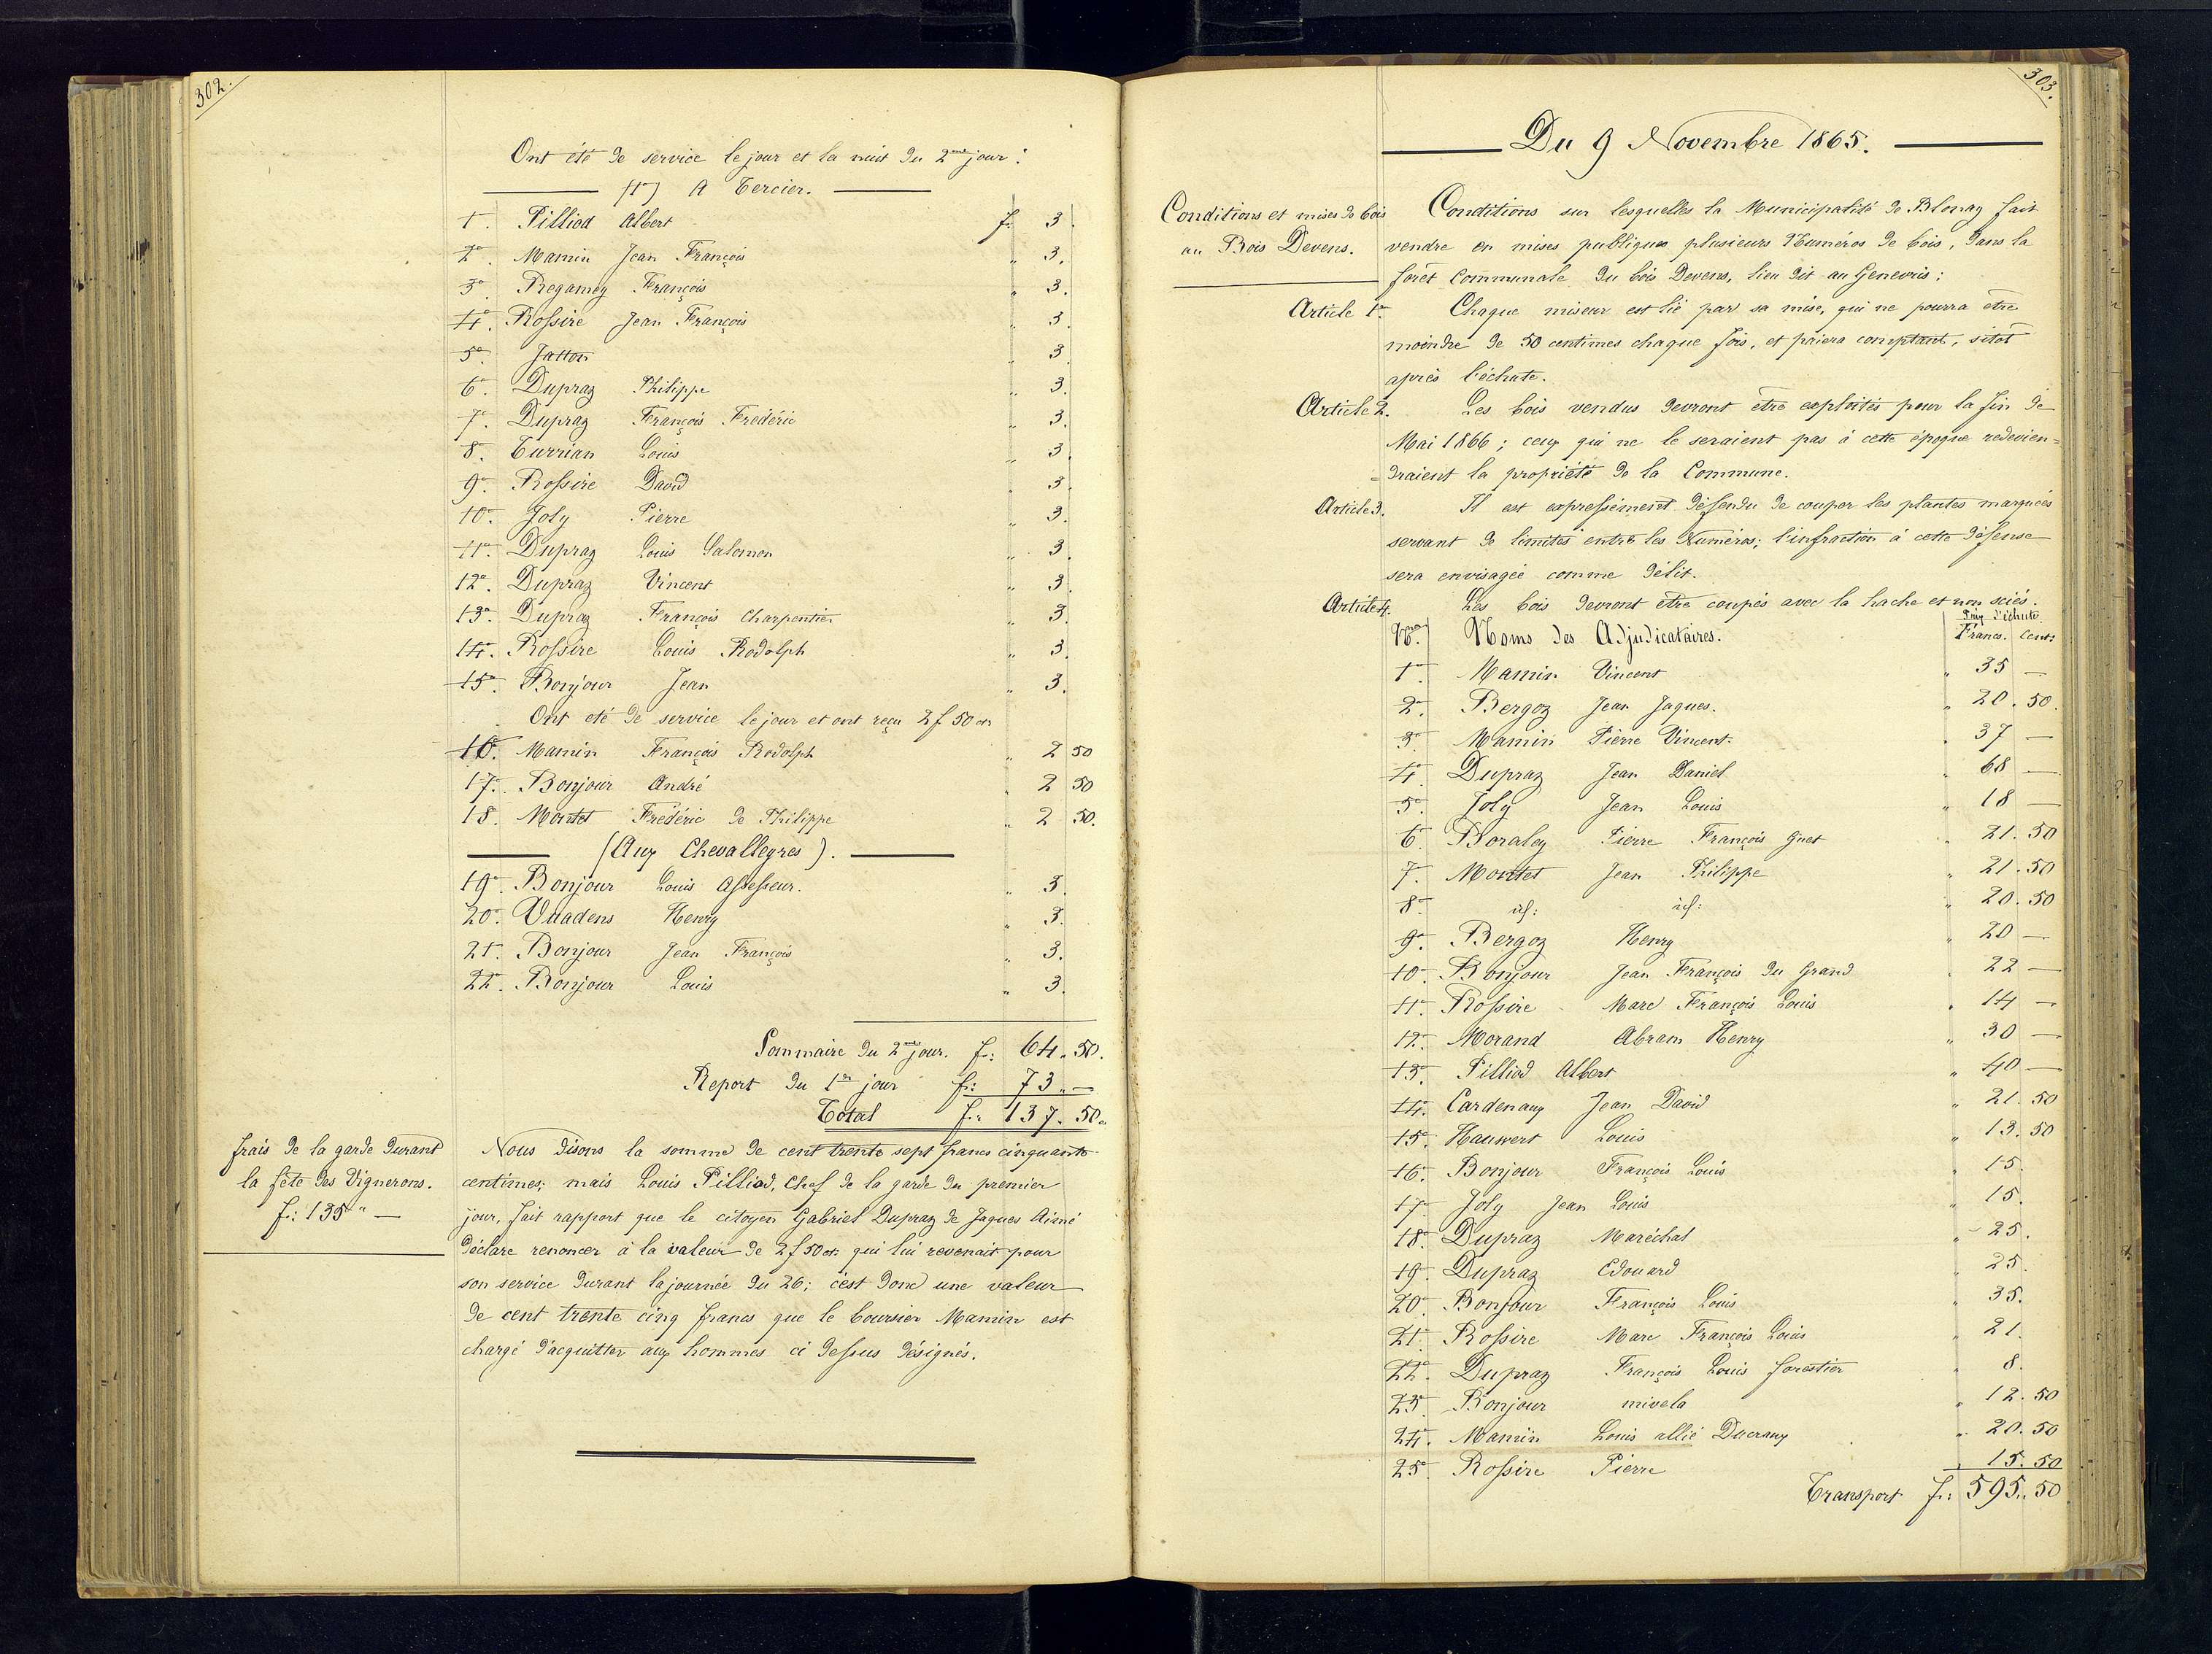 302.
Ont été de service le jour et la nuit du 2me jour :
(1°) A Tercier.
1°. Pilliod Albert fr 3.
2° Mamin Jean François " 3.
3° Regamey François " 3.
4°. Rossire Jean François " 3.
5°. Jatton " 3.
6°. Dupraz Philippe " 3.
7°. Dupraz François Frédéric " 3.
8°. Turrian Louis " 3.
9°. Rossire David " 3.
10°. Joly Pierre " 3.
11°. Dupraz Louis Salomon " 3.
12°. Dupraz Vincent " 3.
13°. Dupraz François Charpentier " 3.
14°. Rossire Louis Rodolph " 3.
15°. Bonjour Jean " 3.
Ont été de service le jour et ont reçu 2 f 50 cs
16°. Mamin François Rodolph " 2 50
17°. Bonjour André " 2 50
18. Montet Frédéric de Philippe " 2 50.
(Aux Chevalleyres).
19°. Bonjour Louis Assesseur. " 3.
20°. Vuadens Henry " 3.
21°. Bonjour Jean François " 3.
22°. Bonjour Louis " 3.
Sommaire du 2me jour. fr: 64.. 50.
Report du 1er jour fr: 73.. —
Total fr: 137. 50.
frais de la garde durant
la fête des Vignerons.
fr: 135 " —
Nous disons la somme de cent trente sept francs cinquante
centimes; mais Louis Pilliod, Chef de la garde du premier
jour, fait rapport que le citoyen Gabriel Dupraz de Jaques Aimé
déclare renoncer à la valeur de 2 f 50 cs. qui lui revenait pour
son service durant la journée du 26; c'est donc une valeur
de cent trente cinq francs que le boursier Mamin est
chargé d'acquitter aux hommes ci dessus désignés.
303.
Du 9 Novembre 1865.
Conditions et mises de bois
au Bois Devens.
Conditions sur lesquelles la Municipalité de Blonay fait
vendre en mises publiques plusieurs Numéros de bois, dans la
forêt Communale du bois Devens, lieu dit au Genevris :
Article 1er. Chaque miseur est lié par sa mise, qui ne pourra être
moindre de 50 centimes chaque fois, et paiera comptant, sitôt
après l'échute.
Article 2. Les bois vendus devront être exploités pour la fin de
Mai 1866 ; ceux qui ne le seraient pas à cette époque redevien=
=draient la propriété de la Commune.
Article 3. Il est expressément défendu de couper les plantes marquées
servant de limites entre les Numéros; l'infraction à cette défense
sera envisagée comme délit.
Article 4. Les bois devront être coupés avec la hache et non sciés.
Nos. Noms des Adjudicataires. Prix d'échute
Francs. Cents:
1° Mamin Vincent " 35 —
2°. Bergoz Jean Jaques. " 20. 50.
3° Mamin Pierre Vincent. " 37 —
4° Dupraz Jean Daniel " 68 —
5° Joly Jean Louis " 18 —
6° Boraley Pierre François guet " 21. 50
7°. Montet Jean Philippe " 21. 50
8° id: id: " 20. 50
9°. Bergoz Henry " 20 —
10° Bonjour Jean François du Grand " 22 —
11° Rossire Marc François Louis " 14 —
12° Morand Abram Henry " 30 —
13° Pilliod Albert " 40 —
14° Cardenaux Jean David " 21. 50
15° Hauwert Louis " 13. 50
16° Bonjour François Louis " 15.
17° Joly Jean Louis " 15.
18° Dupraz Maréchal " 25.
19° Dupraz Edouard " 25.
20° Bonjour François Louis " 35.
21° Rossire Marc François Louis " 21.
22° Dupraz François Louis forestier " 8.
23° Bonjour mivela " 12. 50
24°. Mamin Louis allié Ducraux " 20. 50
25° Rossire Pierre " 15. 50
Transport fr: 595.. 50